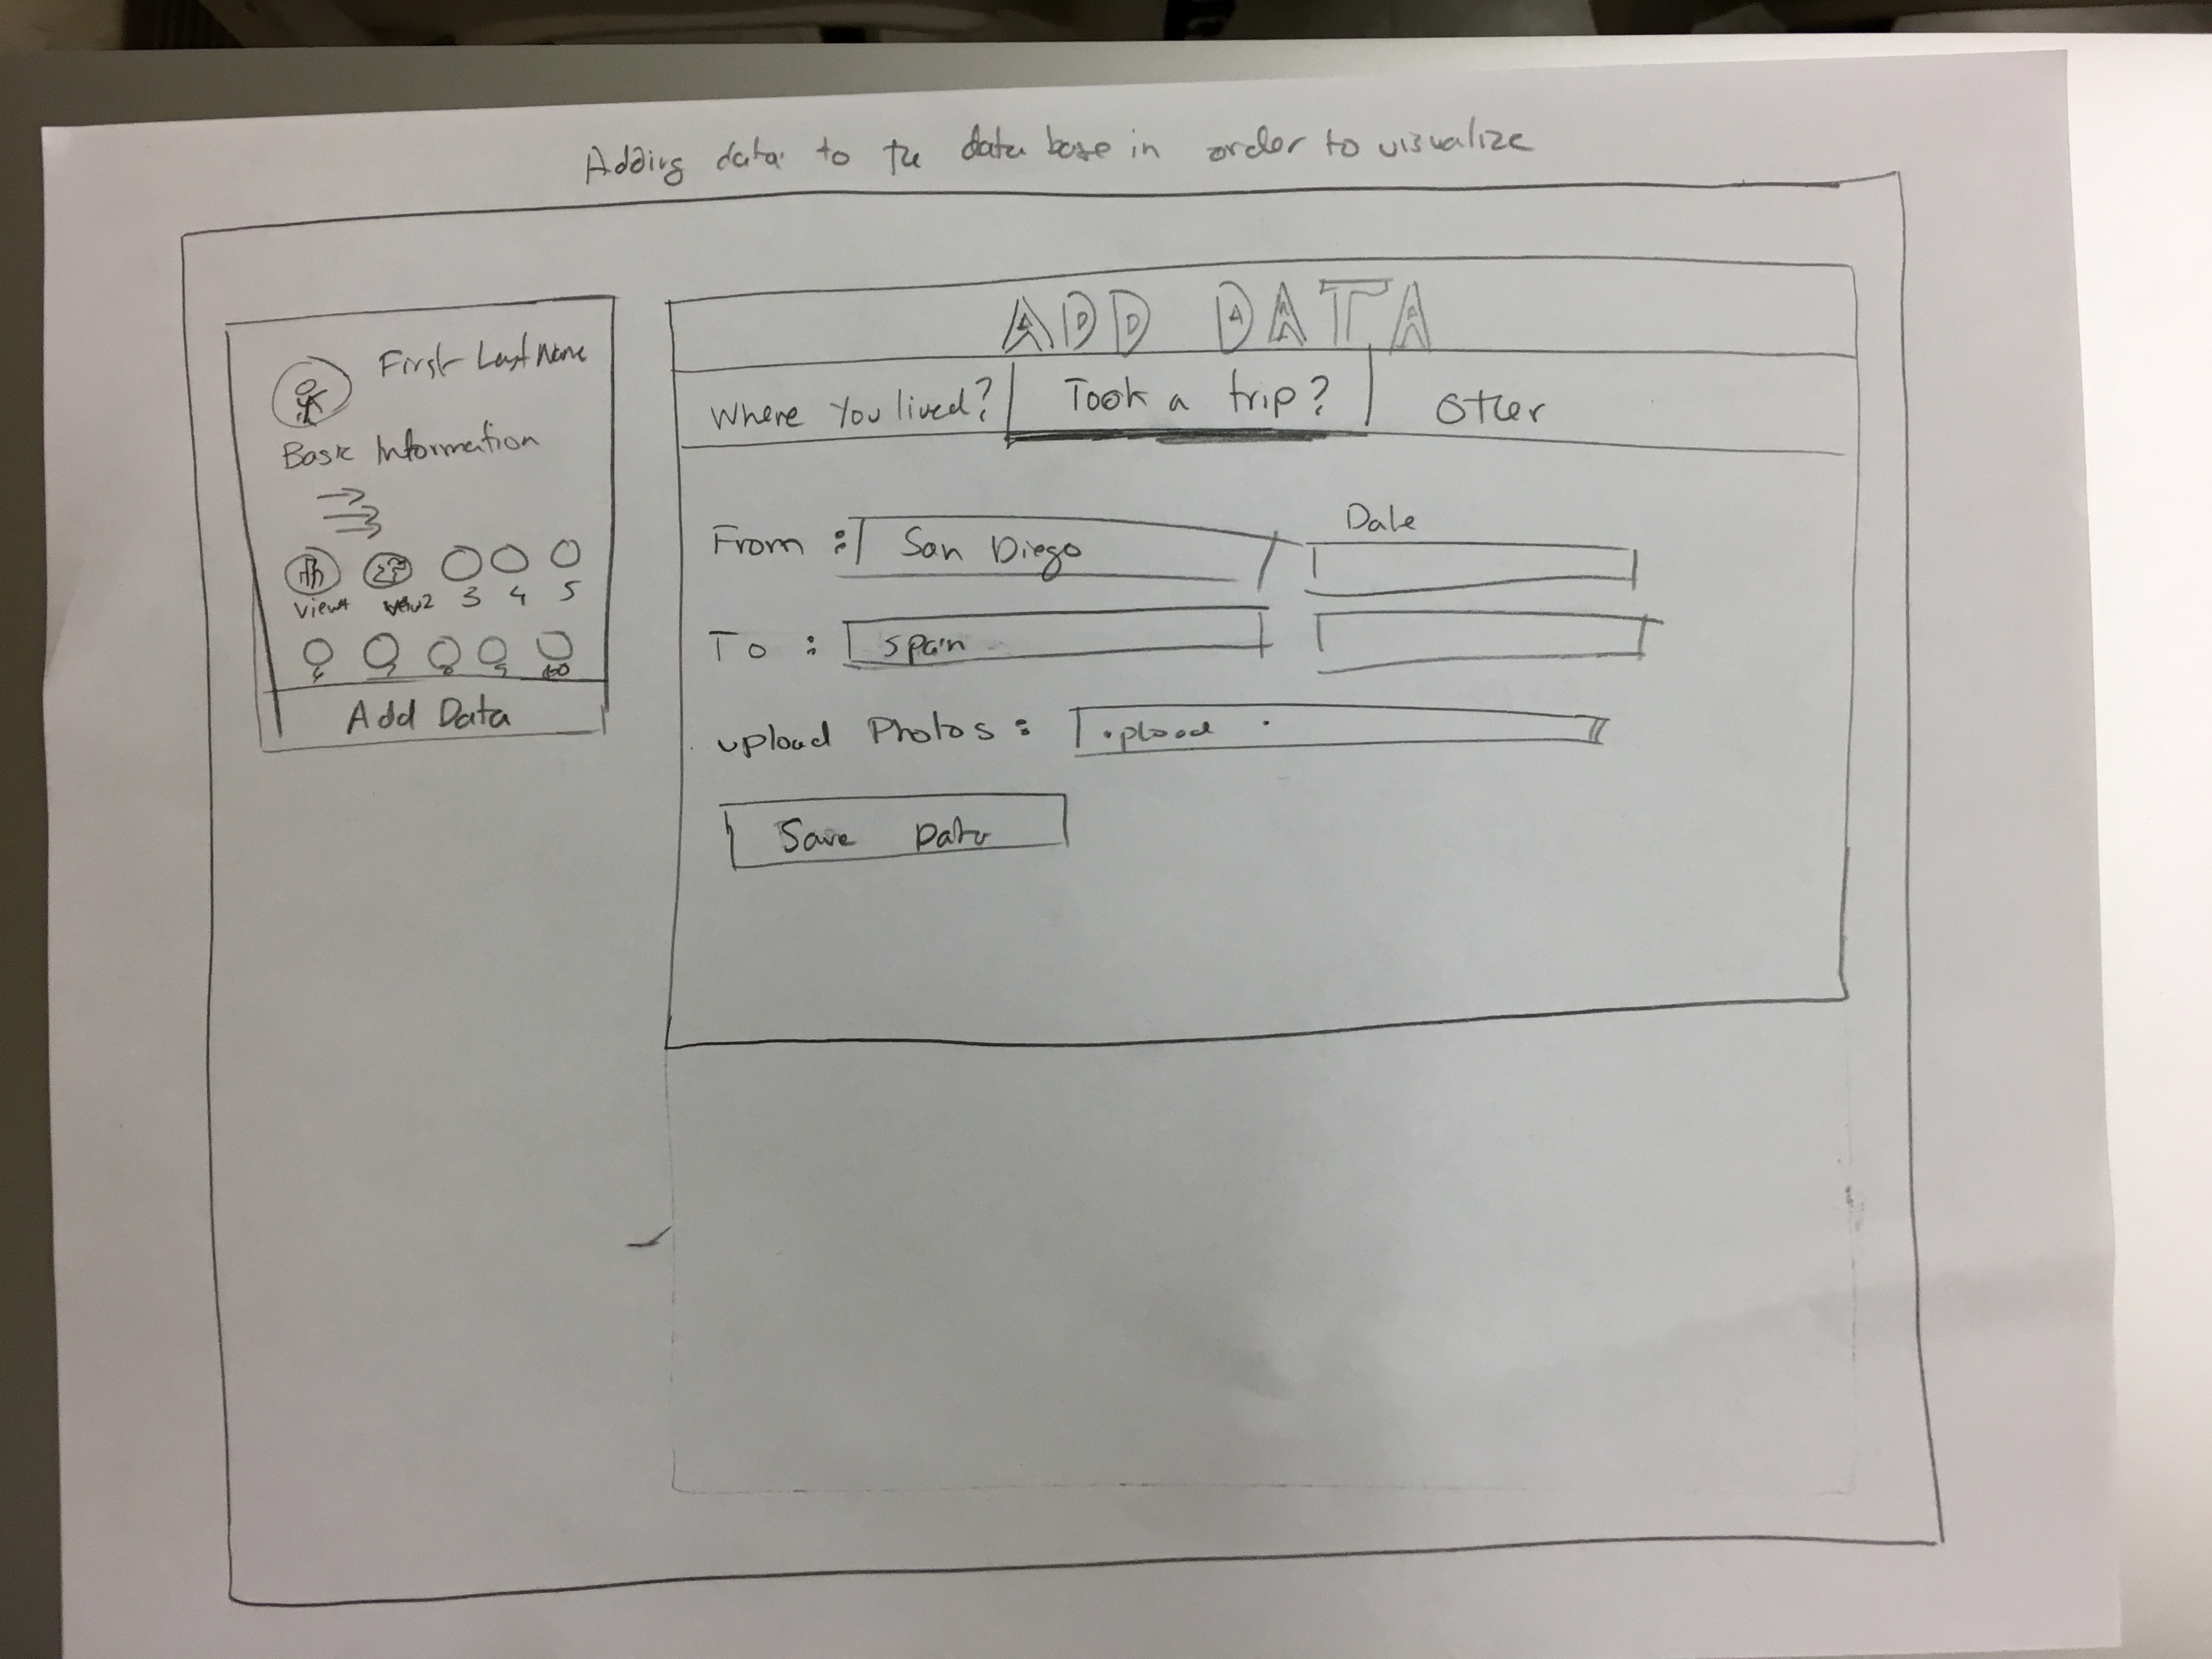 Adding data to the data base in order to visualize
First Last Name
Basic Information
View1 View2 3 4 5
Add Data
ADD DATA
Where You lived? Took a trip? Other
Date
From : San Diego
To : Spain
upload Photos : upload
Save Data